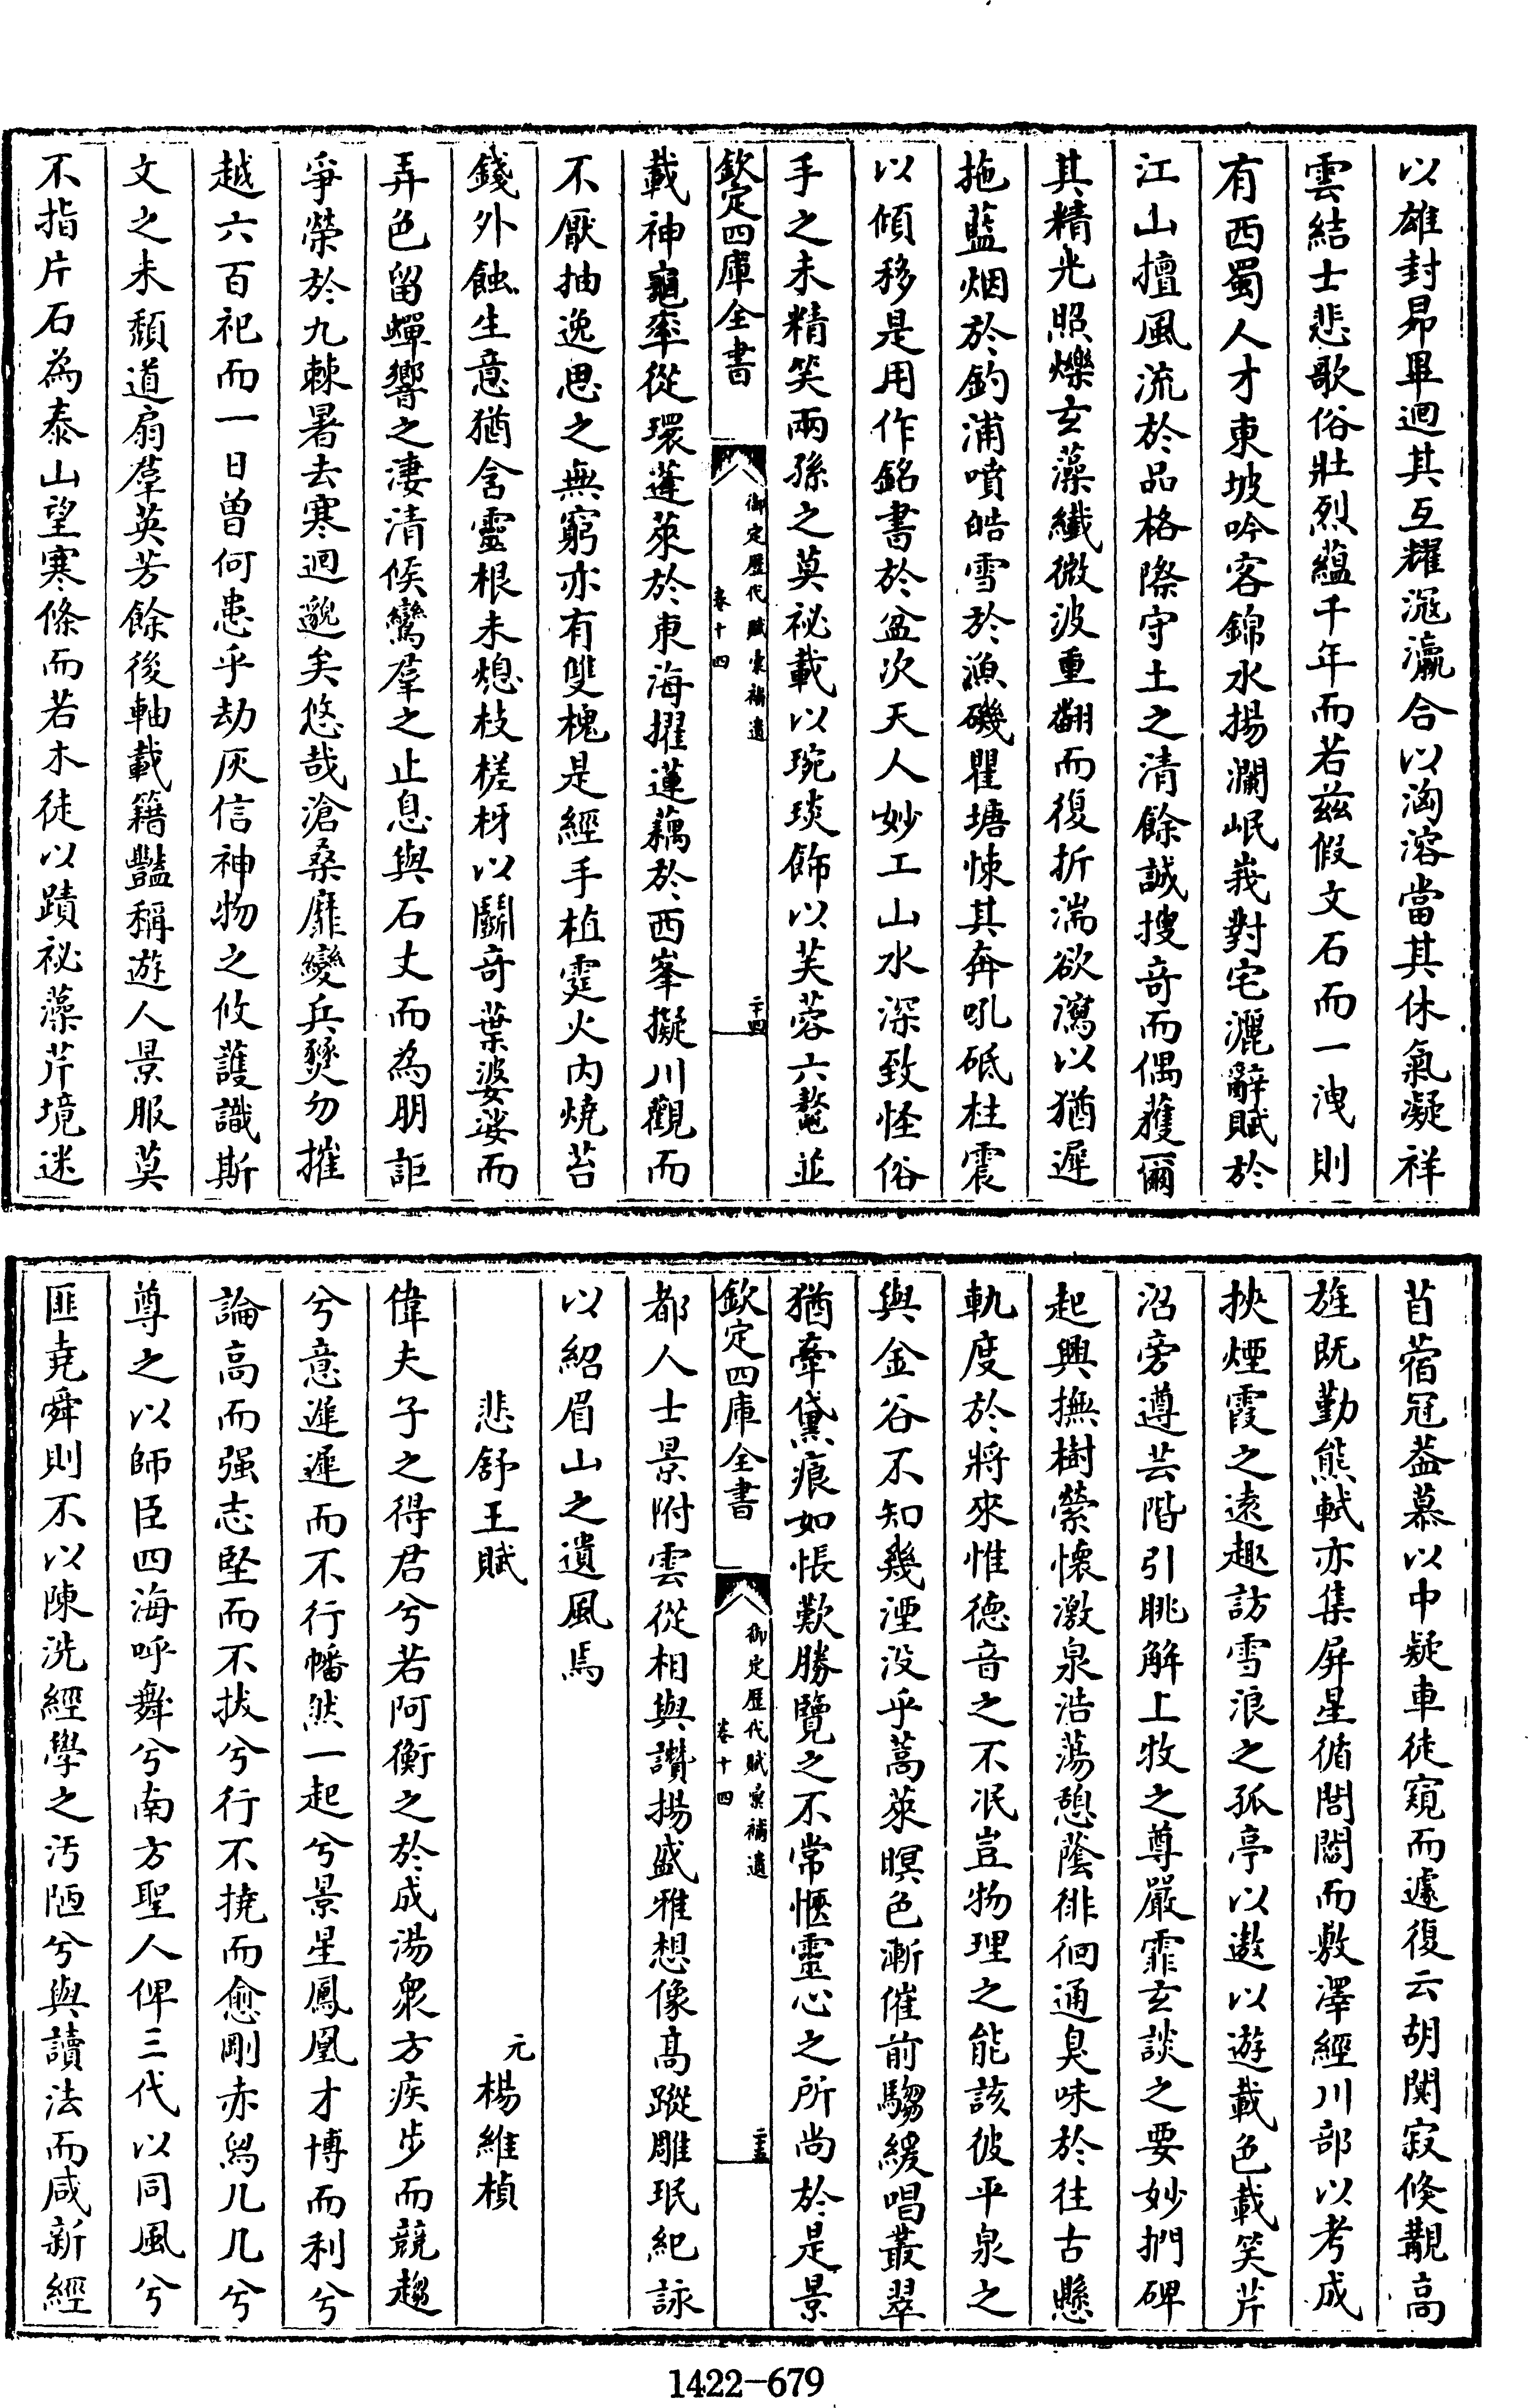 以雄封昴畢迴其互耀滙瀛合以洶溶當其休氣凝祥
雲結士悲歌俗壯烈蘊千年而若茲假文石而一洩則
有西蜀人才東坡吟客錦水揚瀾岷峩對宅灑辭賦於
江山擅風流於品格際守土之清餘誠搜奇而偶獲爾
其精光照爍玄藻纖微波重翻而復折湍欲瀉以猶遲
拖藍烟於釣浦噴皓雪於漁磯瞿塘悚其奔吼砥柱震
以傾移是用作銘書於盆次天人妙工山水深致怪俗
手之未精笑兩孫之莫祕載以琬琰飾以芙蓉六鰲並
欽定四庫全書
御定歴代賦彙補遺
卷十四
二十四
載神龜率從環蓬萊於東海擢蓮藕於西峯擬川觀而
不厭抽逸思之無窮亦有雙槐是經手植霆火内燒苔
錢外蝕生意猶含靈根未熄枝槎枒以鬬奇葉婆娑而
弄色留蟬響之淒清候鸞羣之止息與石丈而為朋詎
爭榮於九棘暑去寒迴邈矣悠哉滄桑靡變兵燹勿摧
越六百祀而一日曽何患乎劫灰信神物之攸護識斯
文之未頹道扇羣英芳餘後軸載籍豔稱遊人景服莫
不指片石為泰山望寒條而若木徒以蹟祕藻芹境迷
苜蓿冠葢慕以中疑車徒窺而遽復云胡闃寂倐覯高
旌既勤熊軾亦集屏星循閭閻而敷澤經川部以考成
挾煙霞之遠趣訪雪浪之孤亭以遨以遊載色載笑芹
沼旁遵芸階引眺解上牧之尊嚴霏玄談之要妙捫碑
起興撫樹縈懷激泉浩蕩憩蔭徘徊通臭味於往古懸
軌度於將來惟德音之不泯豈物理之能該彼平泉之
與金谷不知幾湮没乎蒿萊暝色漸催前騶緩唱叢翠
猶牽黛痕如悵歎勝覽之不常愜靈心之所尚於是景
欽定四庫全書
御定歴代賦彙補遺
卷十四
二十五
都人士景附雲從相與讚揚盛雅想像髙蹤雕珉紀詠
以紹眉山之遺風焉
悲舒王賦
元楊維楨
偉夫子之得君兮若阿衡之於成湯衆方疾步而競趨
兮意進遲而不行幡然一起兮景星鳳凰才博而利兮
論高而强志堅而不拔兮行不撓而愈剛赤舄几几兮
尊之以師臣四海呼舞兮南方聖人俾三代以同風兮
匪堯舜則不以陳洗經學之汚陋兮與讀法而咸新經
1422-679